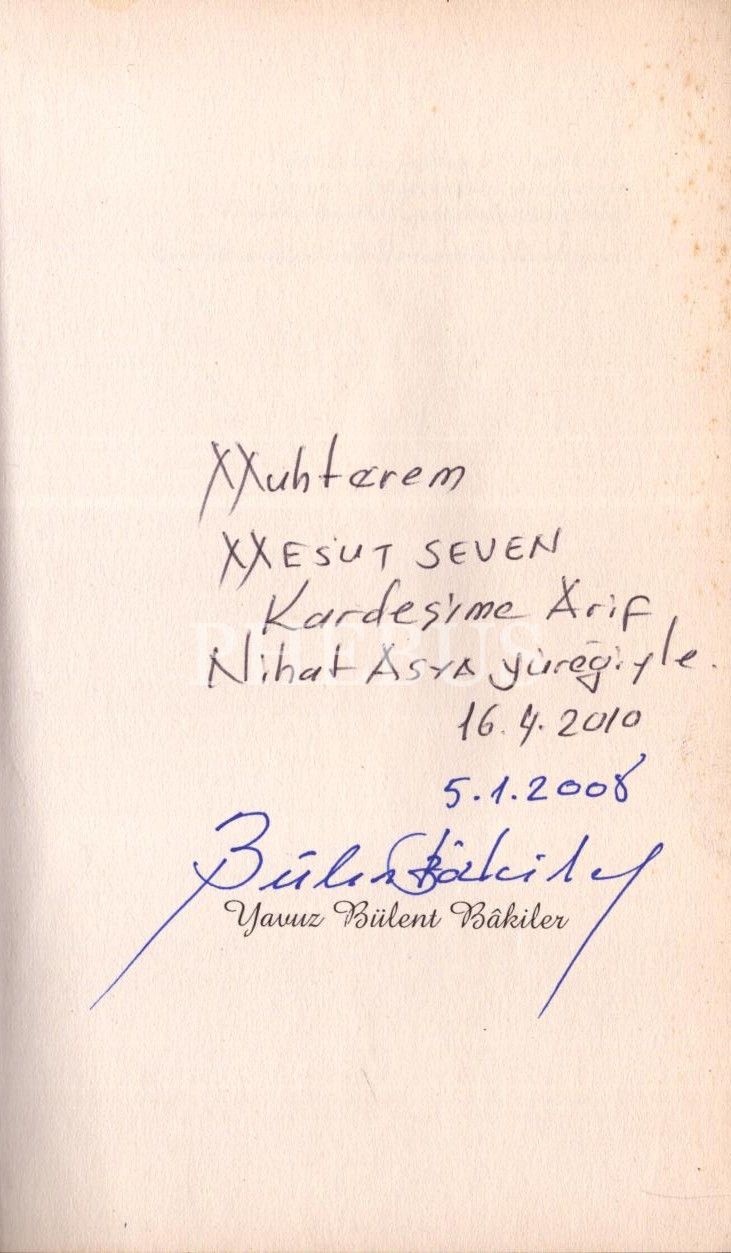 Muhterem
MESUT SEVEN
Kardeşime Arif
Nihat Asya yüreğiyle.
16.4.2010
5.1.2008
Bülent Bâkiler
Yavuz Bülent Bâkiler
PHEBUS